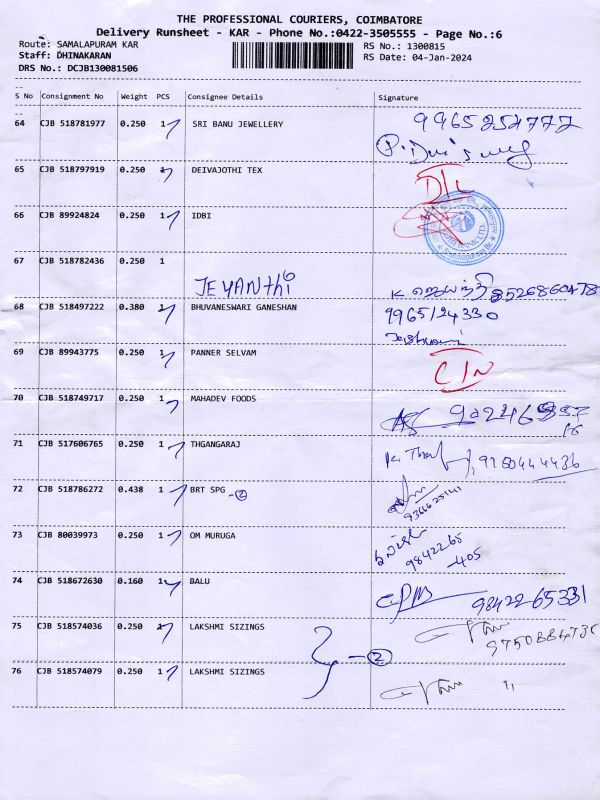 THE PROFESSIONAL COURIERS, COIMBATORE
Delivery Runsheet - KAR - Phone No.:0422-3505555 - Page No.:6
Route: SAMALAPURAM KAR RS No.: 1300815
Staff: DHINAKARAN RS Date: 04-Jan-2024
DRS No.: DCJB130081506
S No Consignment No Weight PCS Consignee Details Signature
64 CJB 518781977 0.250 1 SRI BANU JEWELLERY
65 CJB 518797919 0.250 DEIVAJOTHI TEX
DL
66 CJB 89924824 0.250 1 IDBI
67 CJB 518782436 0.250 1
JEYANthi K ஜெயந்தி 8526860478
68 CJB 518497222 0.380 BHUVANESWARI GANESHAN 9965124330
69 CJB 89943775 0.250 1 PANNER SELVAM
70 CJB 518749717 0.250 1 MAHADEV FOODS
71 CJB 517606765 0.250 1 THGANGARAJ 9780444436
72 CJB 518786272 0.438 1 BRT SPG - 2
73 CJB 80039973 0.250 1 OM MURUGA
9842265
-405
74 CJB 518672630 0.160 1 BALU 9842265331
75 CJB 518574036 0.250 LAKSHMI SIZINGS
- 2
76 CJB 518574079 0.250 1 LAKSHMI SIZINGS "